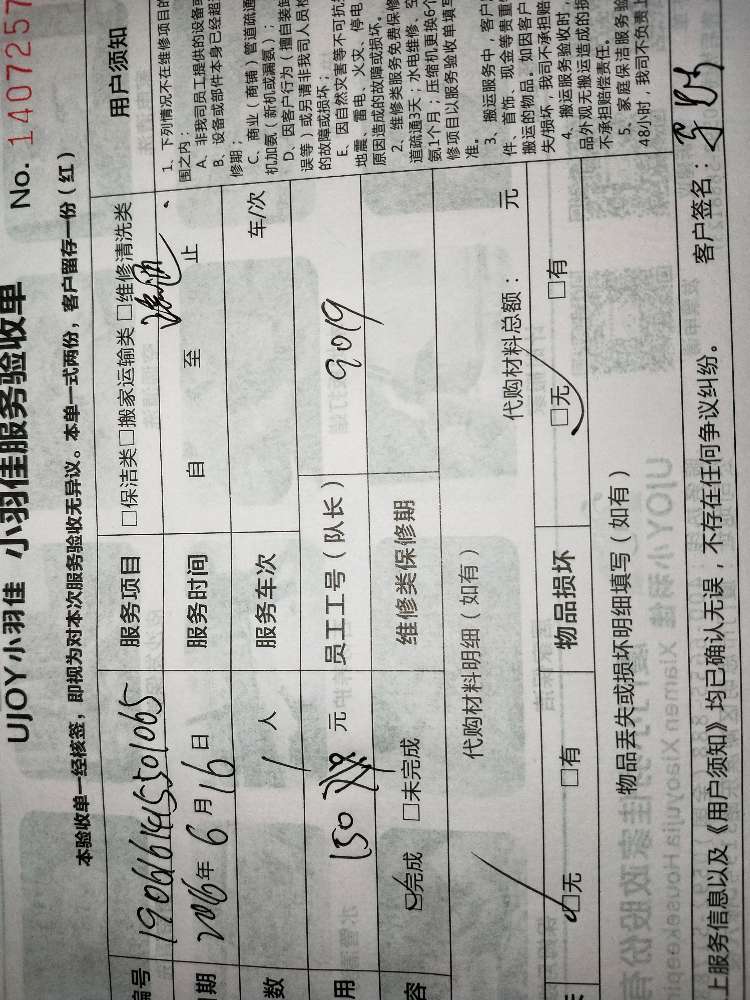 UJOY小羽佳 小羽佳服务验收单
No. 1407257
本验收单一经核签，即视为对本次服务验收无异议。本单一式两份，客户留存一份（红）
编号 190616141553501065
服务项目 □保洁类□搬家运输类 □维修清洗类
期 年 6 月 16 日
服务时间 自 至 止
数 1 人
服务车次 车/次
用 150 元
员工工号（队长） 9019
容 □完成 □未完成
维修类保修期
代购材料明细（如有）
代购材料总额： 元
□无 □有
物品损坏 □无 □有
物品丢失或损坏明细填写（如有）
上服务信息以及《用户须知》均已确认无误，不存在任何争议纠纷。 客户签名：
用户须知
1、下列情况不在维修项目的
围之内：
A、非我司员工提供的设备或
B、设备或部件本身已经超
修期；
C、商业（商铺）管道疏通
机加氨（新机或漏氨）；
D、因客户行为（擅自装卸
误等）或另请非我司人员检
的故障或损坏；
E、因自然灾害等不可抗
地震、雷电、火灾、停电
原因造成的故障或损坏。
2、维修类服务免费保修
道疏通3天；水电维修、空
氨1个月；压缩机更换6个
修项目以服务验收单填写
准。
3、搬运服务中，客户
件、首饰、现金等贵重
搬运的物品。如因客户
失/损坏，我司不承担赔
4、搬运服务验收时，
品外观无搬运造成的损
不承担赔偿责任。
5、家庭保洁服务验
48小时，我司不负责上